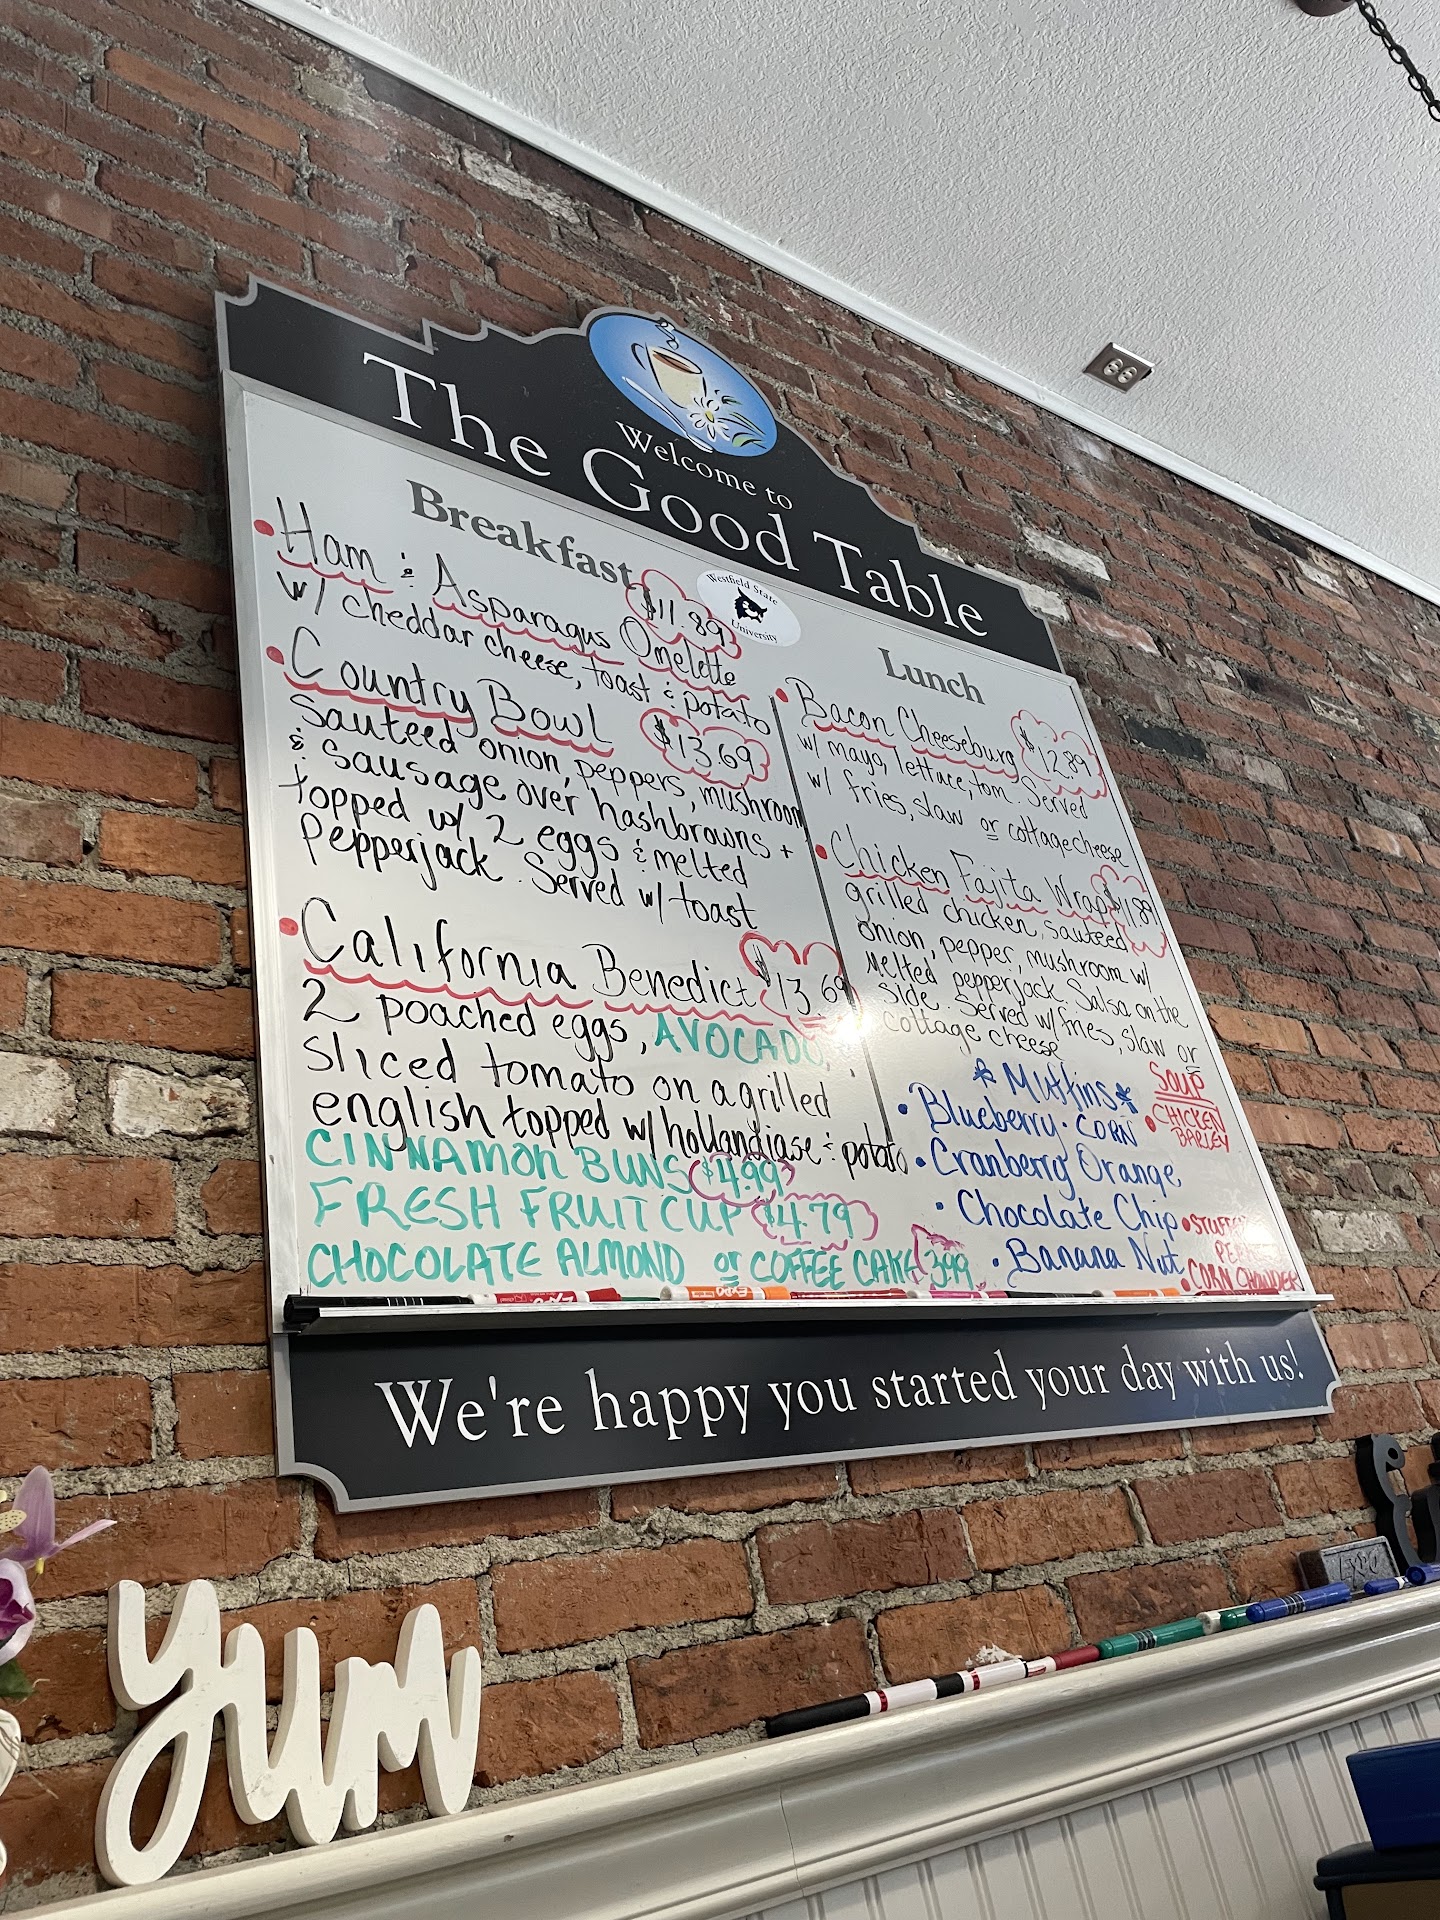 Welcome to
The Good Table
Westfield State
University
Breakfast
Ham & Asparagus Omelette $11.89
w/ cheddar cheese, toast & potato
Country Bowl $13.69
Sauteed onion, peppers, mushroom
& sausage over hashbrowns +
topped w/ 2 eggs & melted
Pepperjack. Served w/ toast
California Benedict $13.69
2 poached eggs, AVOCADO,
sliced tomato on a grilled
english topped w/ hollandiase & potato
CINNAMON BUNS $4.99
FRESH FRUIT CUP $4.79
CHOCOLATE ALMOND or COFFEE CAKE 3.99
Lunch
Bacon Cheeseburg $12.89
w/ mayo, lettuce, tom. Served
w/ fries, slaw or cottage cheese
Chicken Fajita Wrap $11.89
grilled chicken, sauteed
onion, pepper, mushroom w/
Melted pepperjack. Salsa on the
side. Served w/ fries, slaw or
cottage cheese
* Muffins *
Blueberry • CORN
Cranberry Orange
Chocolate Chip
Banana Nut
SOUP
CHICKEN
BARLEY
CORN CHOWDER
We're happy you started your day with us!
yum
EXPO